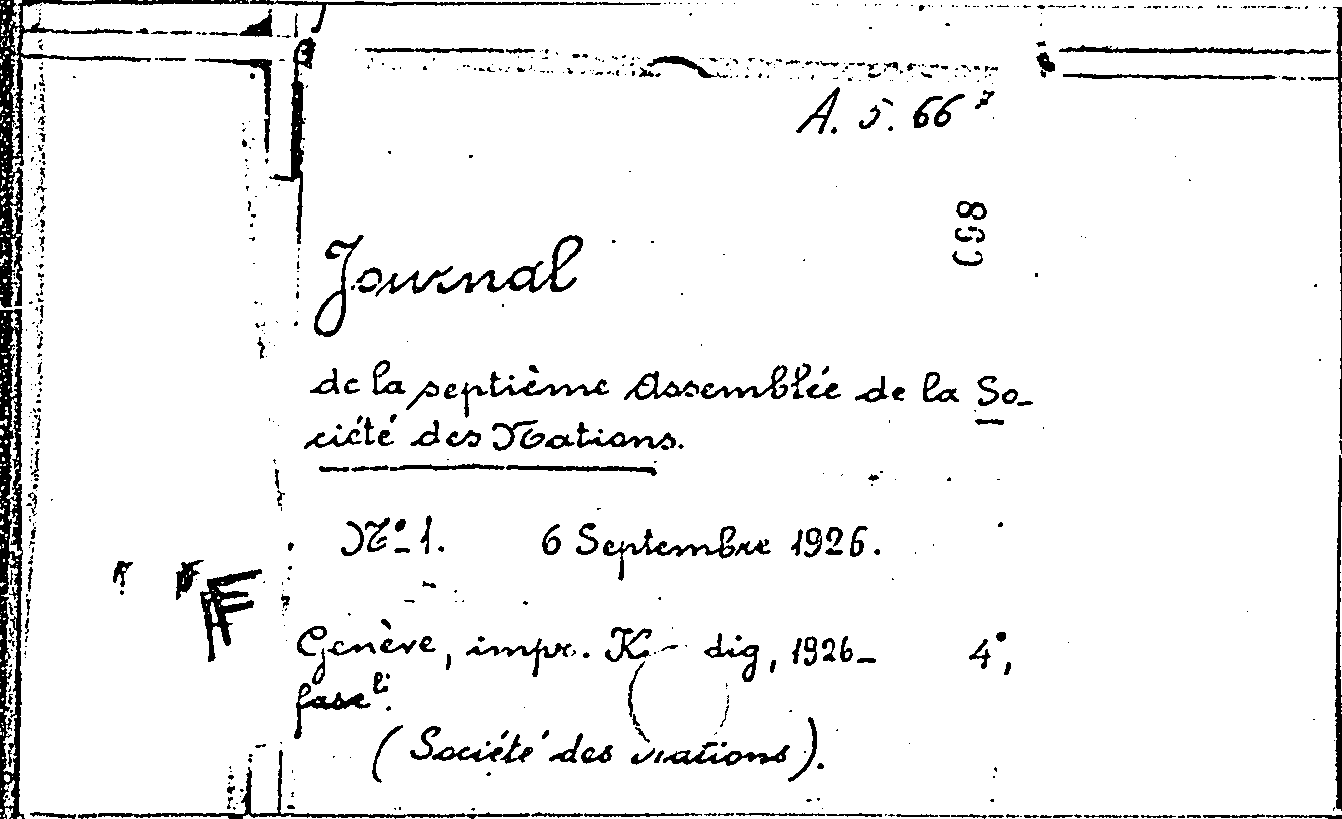 A. 5. 66⁷
Journal
de la septième Assemblée de la So-
ciété des Nations.
Nº 1. 6 Septembre 1926.
Genève, impr. K dig, 1926- 4°,
fascli.
(Société des Nations).